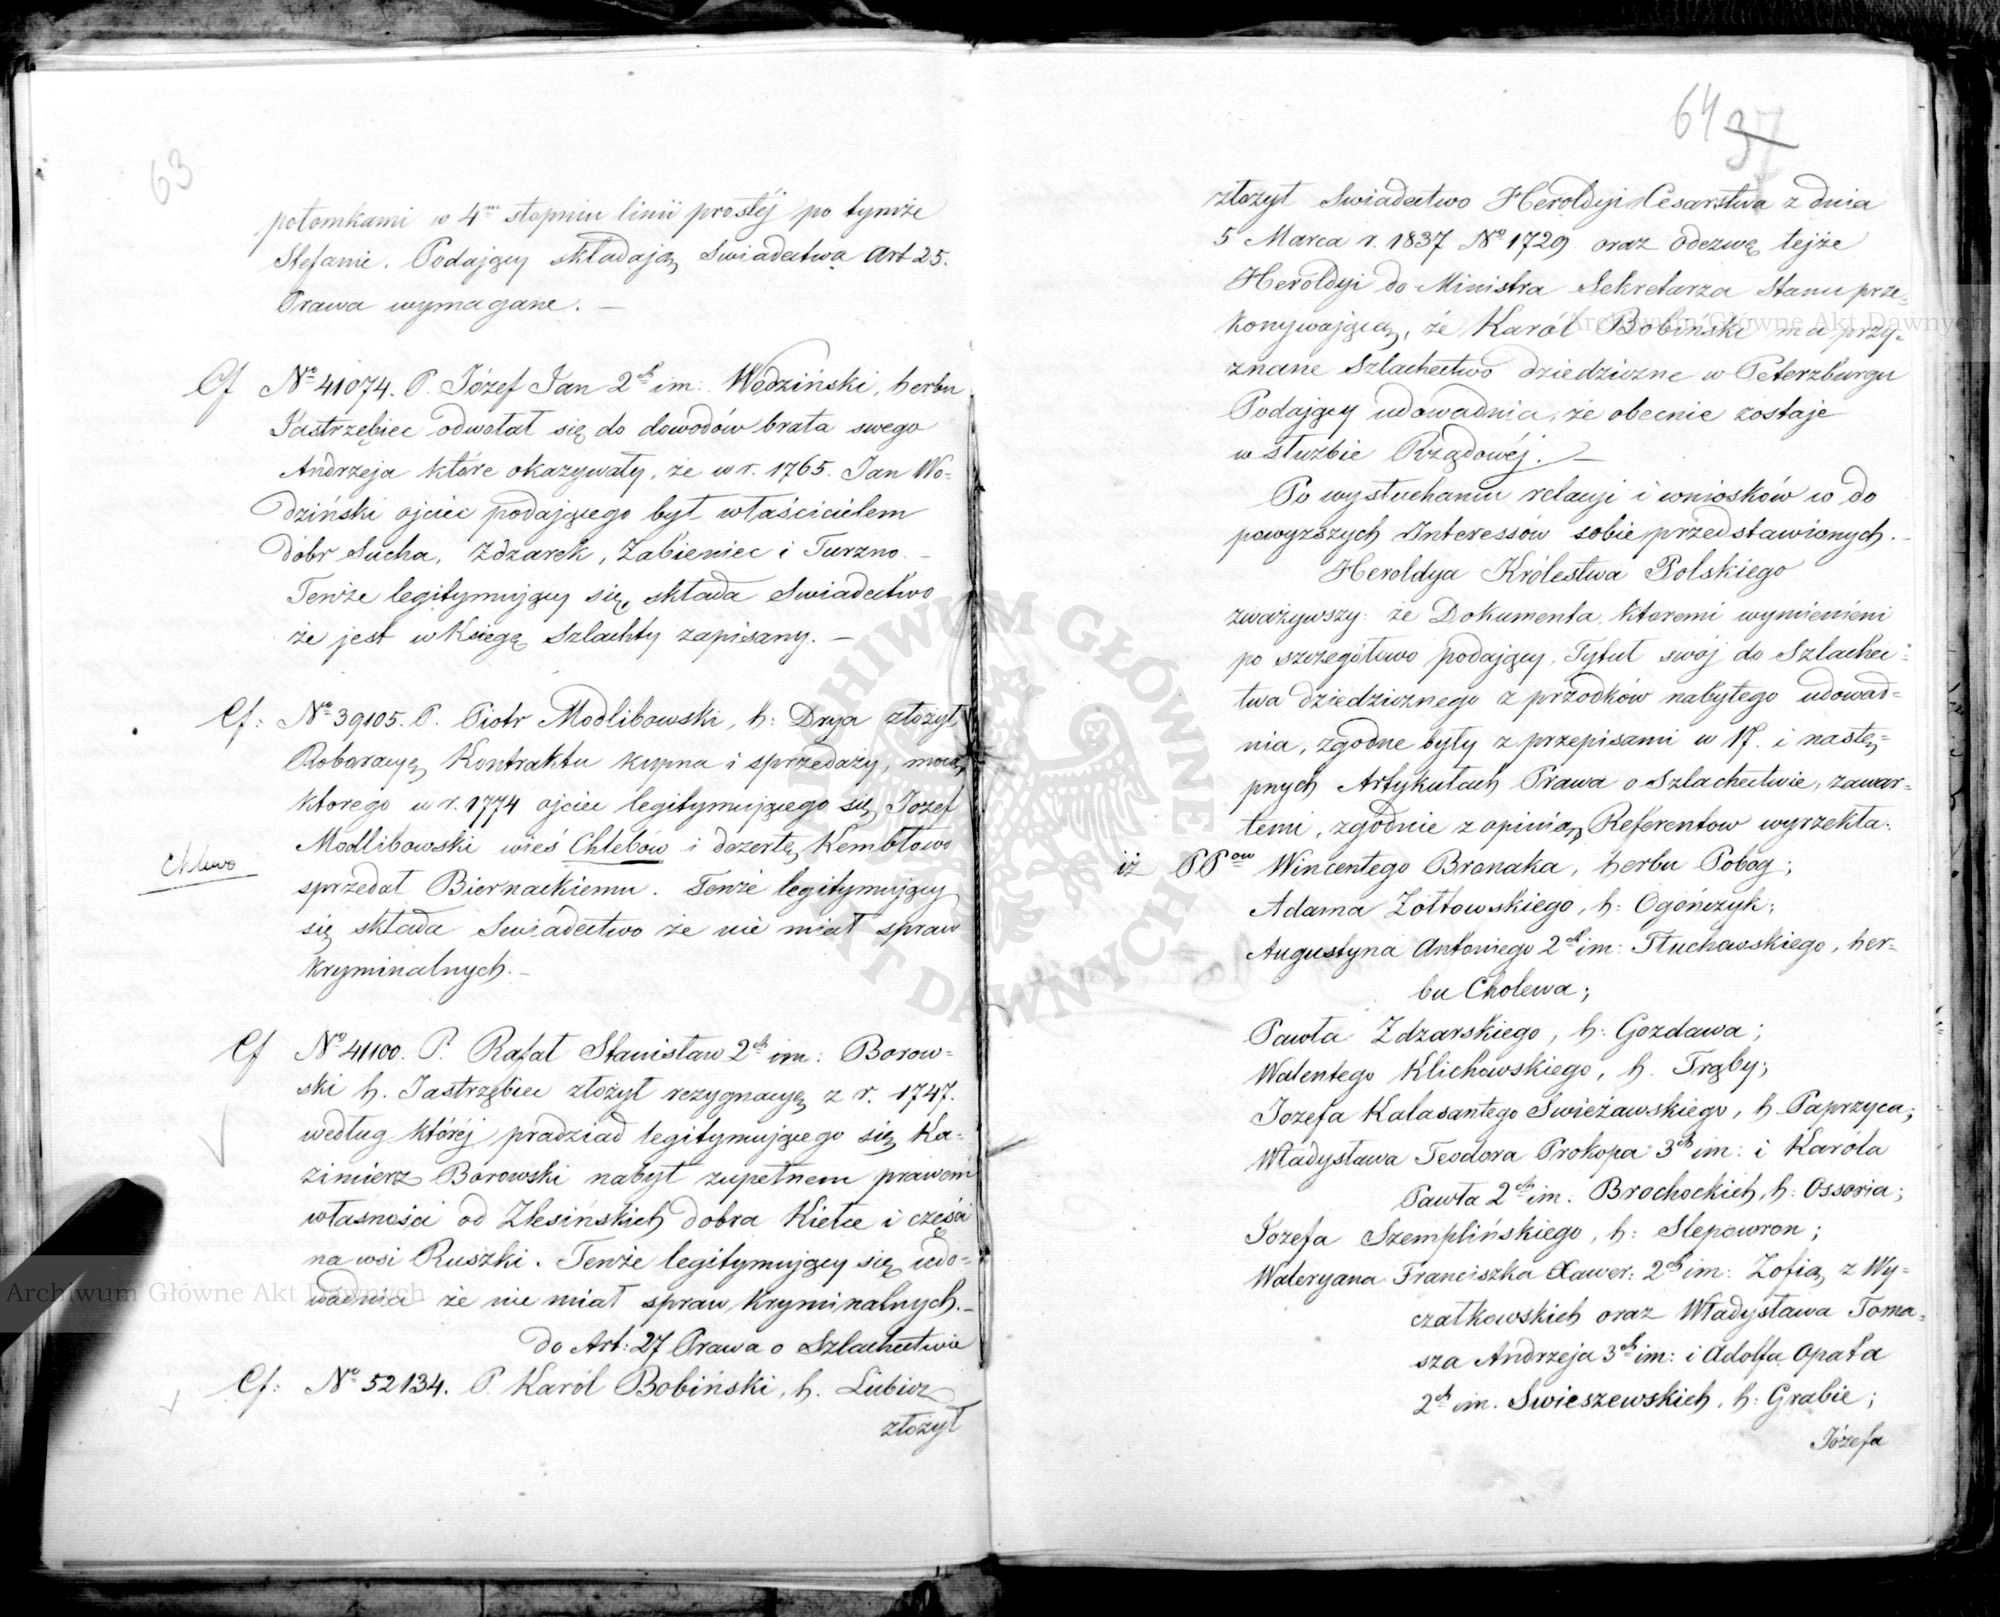 63
potomkami w 4m stopniu linii prostéj po tymże
Stefanie. Podający składają Swiadectwa Art 25.
Prawa wymagane. —
Cf No 41074. P. Józef Jan 2ch im: Wodziński, herbu
Jastrzębiec odwołał się do dowodów brata swego
Andrzeja które okazywały, że w r. 1765. Jan Wo-
dziński ojciec podającego był właścicielem
dóbr Sucha, Zdzarek, Zabieniec i Turzno. —
Tenże legitymujący się, składa Swiadectwo
że jest w Księgę Szlachty zapisany. —
Cf: No 39105. P. Piotr Modlibowski, h: Drya złożył
Roboracyą Kontraktu kupna i sprzedaży, mocą
ktorego w r. 1774 ojciec legitymującego się Jozef
Modlibowski wieś Chlebów i dezertę Kembłowo
Chlewo
sprzedał Biernackiemu. Tenże legitymujący
się składa Swiadectwo że nie miał spraw
kryminalnych. —
Cf No 41100. P. Rafał Stanisław 2ch im: Borow-
ski h. Jastrzębiec złożył rezygnacyą z r. 1747.
według któréj pradziad legitymującego się Ka-
zimierz Borowski nabył zupełnem prawem
własności od Zlesińskich dobra Kiełce i części
na wsi Ruszki. Tenże legitymujący się udo-
wadnia że nie miał spraw kryminalnych. —
do Art: 27 Prawa o Szlachectwie
Cf: No 52134. P. Karól Bobiński, h. Lubicz
złożył
64 37
złożył Swiadectwo Heroldyi Cesarstwa z dnia
5 Marca r. 1837 No 1729 oraz odezwę tejże
Heróldyi do Ministra Sekretarza Stanu prze-
konywającą, że Karól Bobiński ma przy-
znane Szlachectwo dziedziczne w Peterzburgu
Podający udowadnia, że obecnie zostaje
w służbie Rządowéj. —
Po wysłuchaniu relacyi i wniosków w do
powyzszych Interessów sobie przedstawionych. —
Heroldya Królestwa Polskiego
zważywszy: że Dokumenta, ktoremi wymienieni
po szczegółowo podający, Tytuł swój do Szlachec-
twa dziedzicznego z przodków nabytego udowad-
nia, zgodne były z przepisami w 17. i nastę-
pnych Artykułach Prawa o Szlachectwie, zawar-
temi, zgodnie z opinią Referentow wyrzekła:
iż PPow Wincentego Bronaka, herbu Pobog;
Adama Zółtowskiego, h: Ogończyk;
Augustyna Antoniego 2ch im: Tłuchowskiego, her-
bu Cholewa;
Pawła Zdzarskiego, h: Gozdawa;
Walentego Klichowskiego, h. Trąby;
Jozefa Kalasantego Swieżawskiego, h. Paprzyca;
Władysława Teodora Prokopa 3ch im: i Karola
Pawła 2ch im. Brochockich, h: Ossoria;
Jozefa Szemplińskiego, h: Slepowron;
Waleryana Franciszka Xawer: 2ch im: Zofią z Wy-
czałkowskich oraz Władysława Toma-
sza Andrzeja 3ch im: i Adolfa Opata
2ch im. Swieszewskich, h: Grabie;
Józefa
Archiwum Główne Akt Dawnych
Archiwum Główne Akt Dawnych
ARCHIWUM GŁÓWNE AKT DAWNYCH